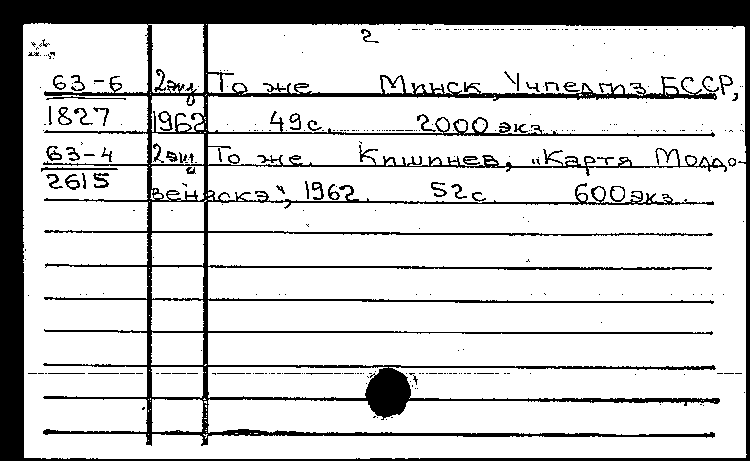 2
63-6 2экз То же. Минск, Учпедгиз БССР,
1827 1962. 49с. 2000 экз.
63-4 2экз То же. Кишинев, „Картя Молдо-
2615 веняскэ", 1962. 52с. 600 экз.